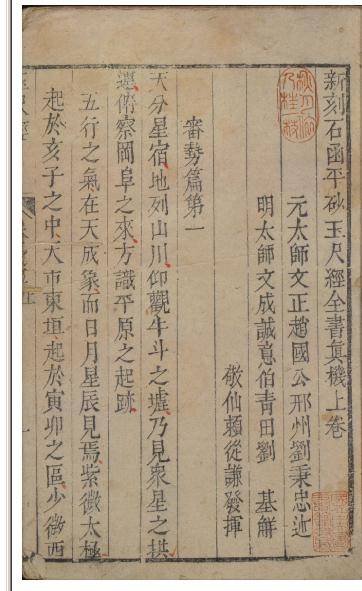 新刻石函平砂玉尺經全書眞機上卷
元太師文正趙國公邢州劉秉忠述
明太師文成誠意伯青田劉 基解
敬仙賴從謙發揮
審勢篇第一
天分星宿地列山川仰觀牛斗之墟乃見衆星之拱
運俯察岡阜之來方識平原之起跡
五行之氣在天成象而日月星辰見焉紫微太極
起於亥子之中天市東垣起於寅卯之區少微西